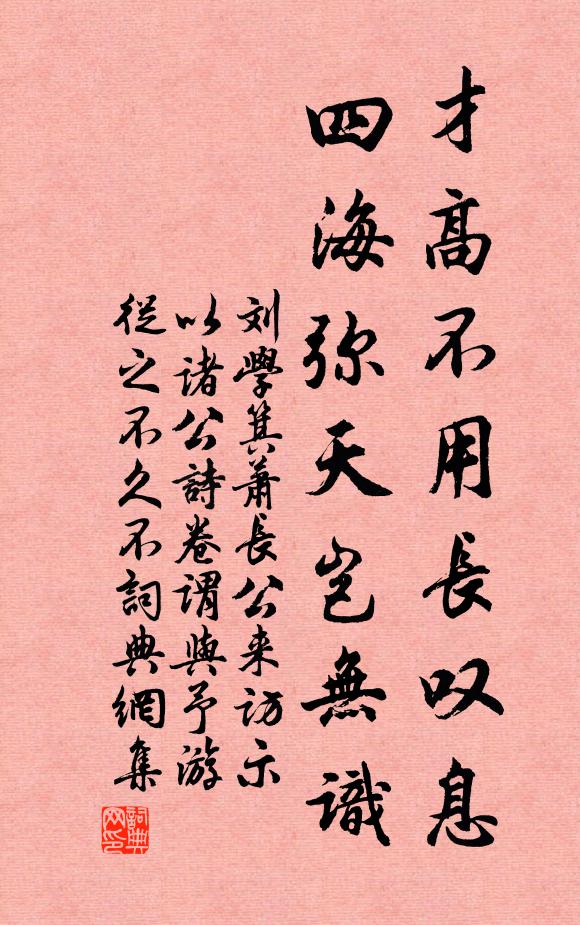 才高不用長叹息
四海弥天岂無識
刘學箕蕭長公来訪示
以諸公詩卷谓與予游
從之不久不詞典網集
詞典
网印